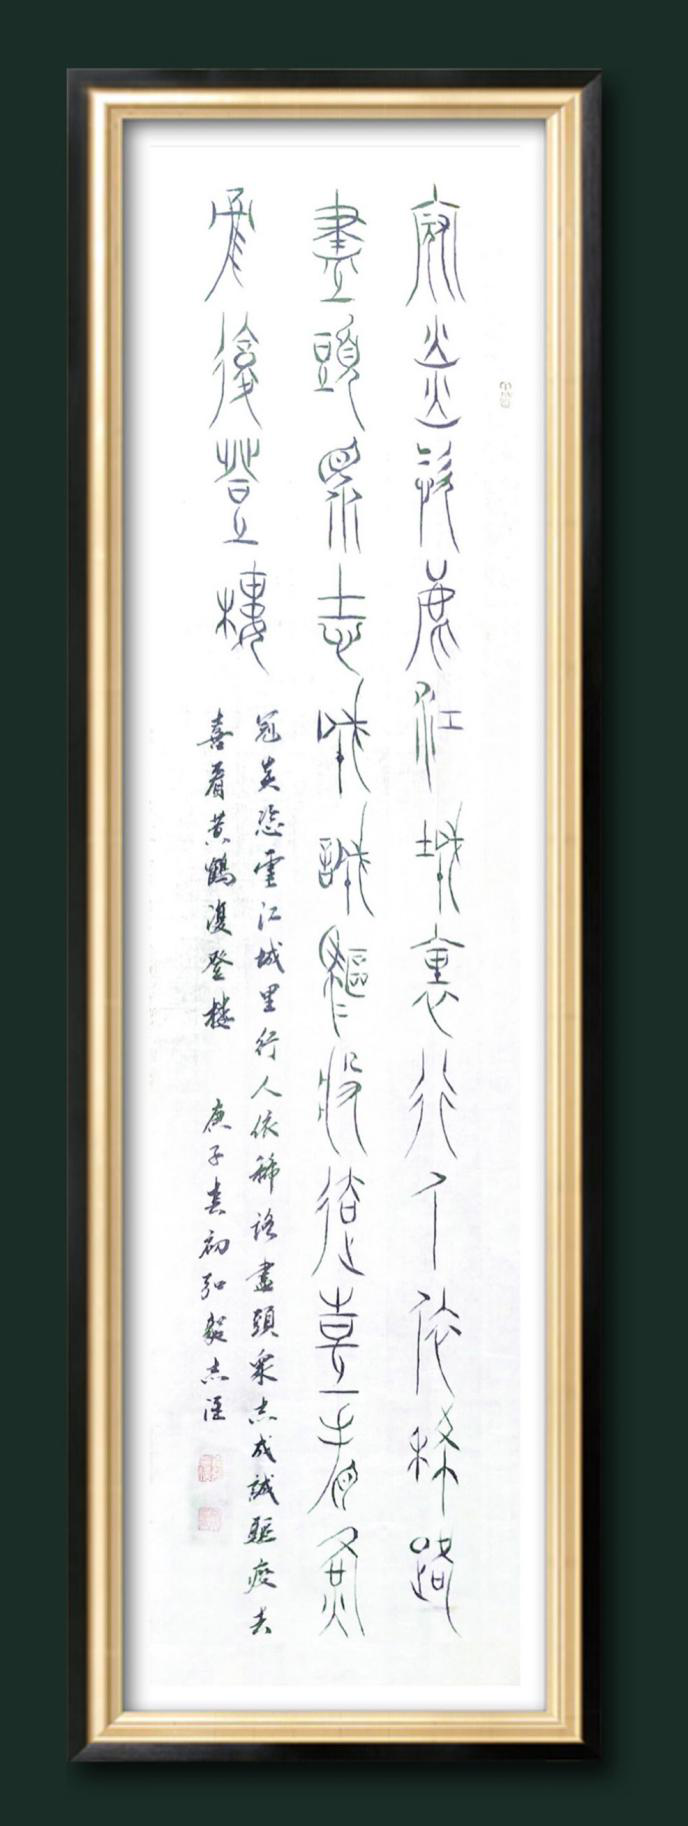 冠炎恣虐江城裏行人依稀路
盡頭眾志成誠驅疫去喜看黃
鶴復登樓
冠炎恣虐江城里行人依稀路盡頭眾志成誠驅疫去
喜看黄鶴復登楼 庚子春初弘毅志